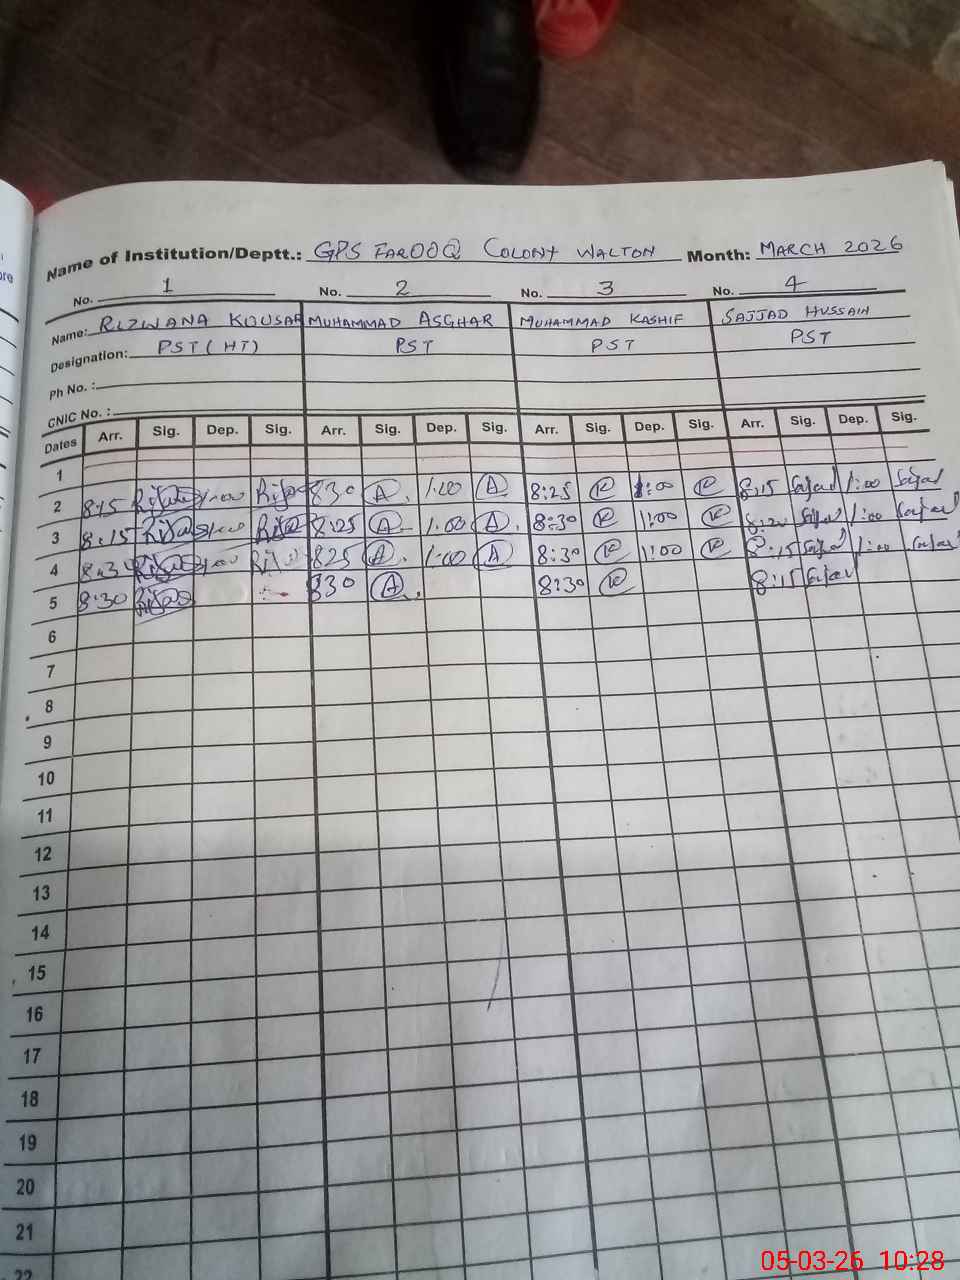 Name of Institution/Deptt.: GPS FAROOQ COLONY WALTON Month: MARCH 2026
No. 1 No. 2 No. 3 No. 4
Name: RIZWANA KOUSAR MUHAMMAD ASGHAR MUHAMMAD KASHIF SAJJAD HUSSAIN
Designation: PST (HT) PST PST PST
Ph No. :
CNIC No. :
Dates Arr. Sig. Dep. Sig. Arr. Sig. Dep. Sig. Arr. Sig. Dep. Sig. Arr. Sig. Dep. Sig.
1
2 8:15 1:00 830 A 1:00 A 8:25 K 1:00 K 8:15 1:00
3 8:15 1:00 8:25 A 1:00 A 8:30 K 1:00 K 8:20 1:00
4 1:00 825 A 1:00 A 8:30 K 1:00 K 8:15 1:00
5 8:30 830 A 8:30 K 8:15
6
7
8
9
10
11
12
13
14
15
16
17
18
19
20
21
22
05-03-26 10:28